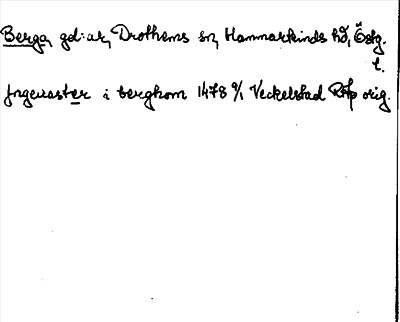 Berga, gd:ar, Drothems sn, Hammarkinds hd, Östg.
l.
Jngeuaster i berghom 1478 9/1 Veckelstad RAp orig.